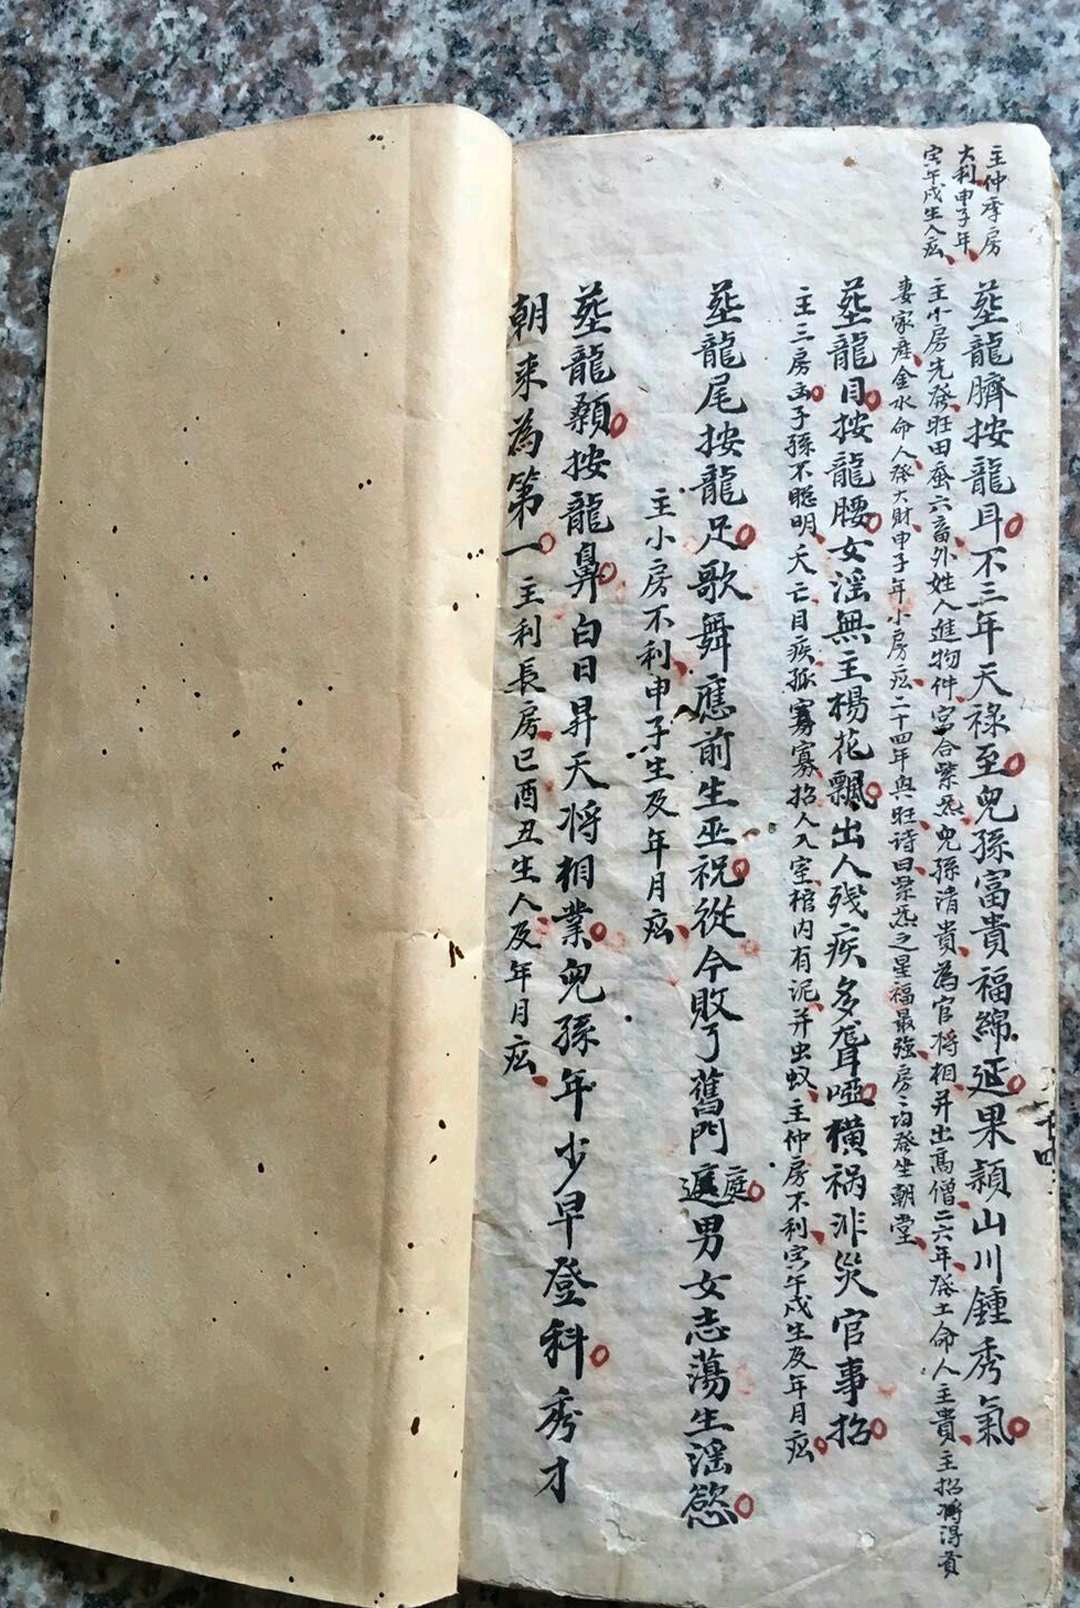 主仲季房
大利申子年
寅午戌生人応
葬龍臍按龍耳不三年天祿至兒孫富貴福綿延果穎山川鍾秀氣
主小房先發旺田蚕六畜外姓人進物件宮合紫炁兒孫清貴為官将相并出高僧二六年發土命人主貴主招将得貴
妻家産金水命人發大財申子年小房応二十四年興旺诗曰紫炁之星福最強房〻均發坐朝堂
葬龍目按龍腰女滛無主楊花飄出人残疾多聾啞橫祸非災官事招
主三房出子孫不聪明夭亡目疾孤寡寡招人入室棺内有泥并虫蚁主仲房不利寅午戌生及年月応
葬龍尾按龍足歌舞應前生巫祝從今敗了舊門庭男女志蕩生滛慾
主小房不利申子生及年月応
葬龍顙按龍鼻白日昇天将相業兒孫年少早登科秀才
朝来為第一主利長房巳酉丑生人及年月応